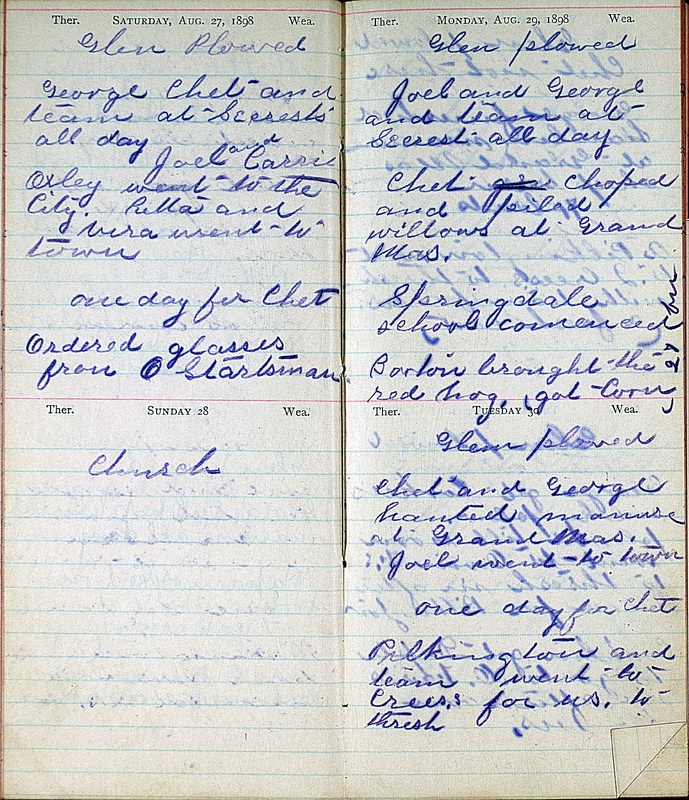 Ther. SATURDAY, AUG. 27, 1898 Wea.
Glen Plowed
George Chet and
team at Secrests
all day
Joel and Carrie
Oxley went to the
City. Retta and
Vera went to
town
one day for Chet
Ordered glasses
from O Startsman
Ther. SUNDAY 28 Wea.
Church
Ther. MONDAY, AUG. 29, 1898 Wea.
Glen plowed
Joel and George
and team at
Secrest all day
Chet choped
and piled
willows at Grand
Mas.
Springdale
school comenced
Borton brought the
red hog. got corn
Ther. TUESDAY 30 Wea.
Glen plowed
Chet and George
hauted manure
at Grand Mas.
Joel went to town
one day for Chet
Pilkington and
team went to
Crees.s for us. to
thresh